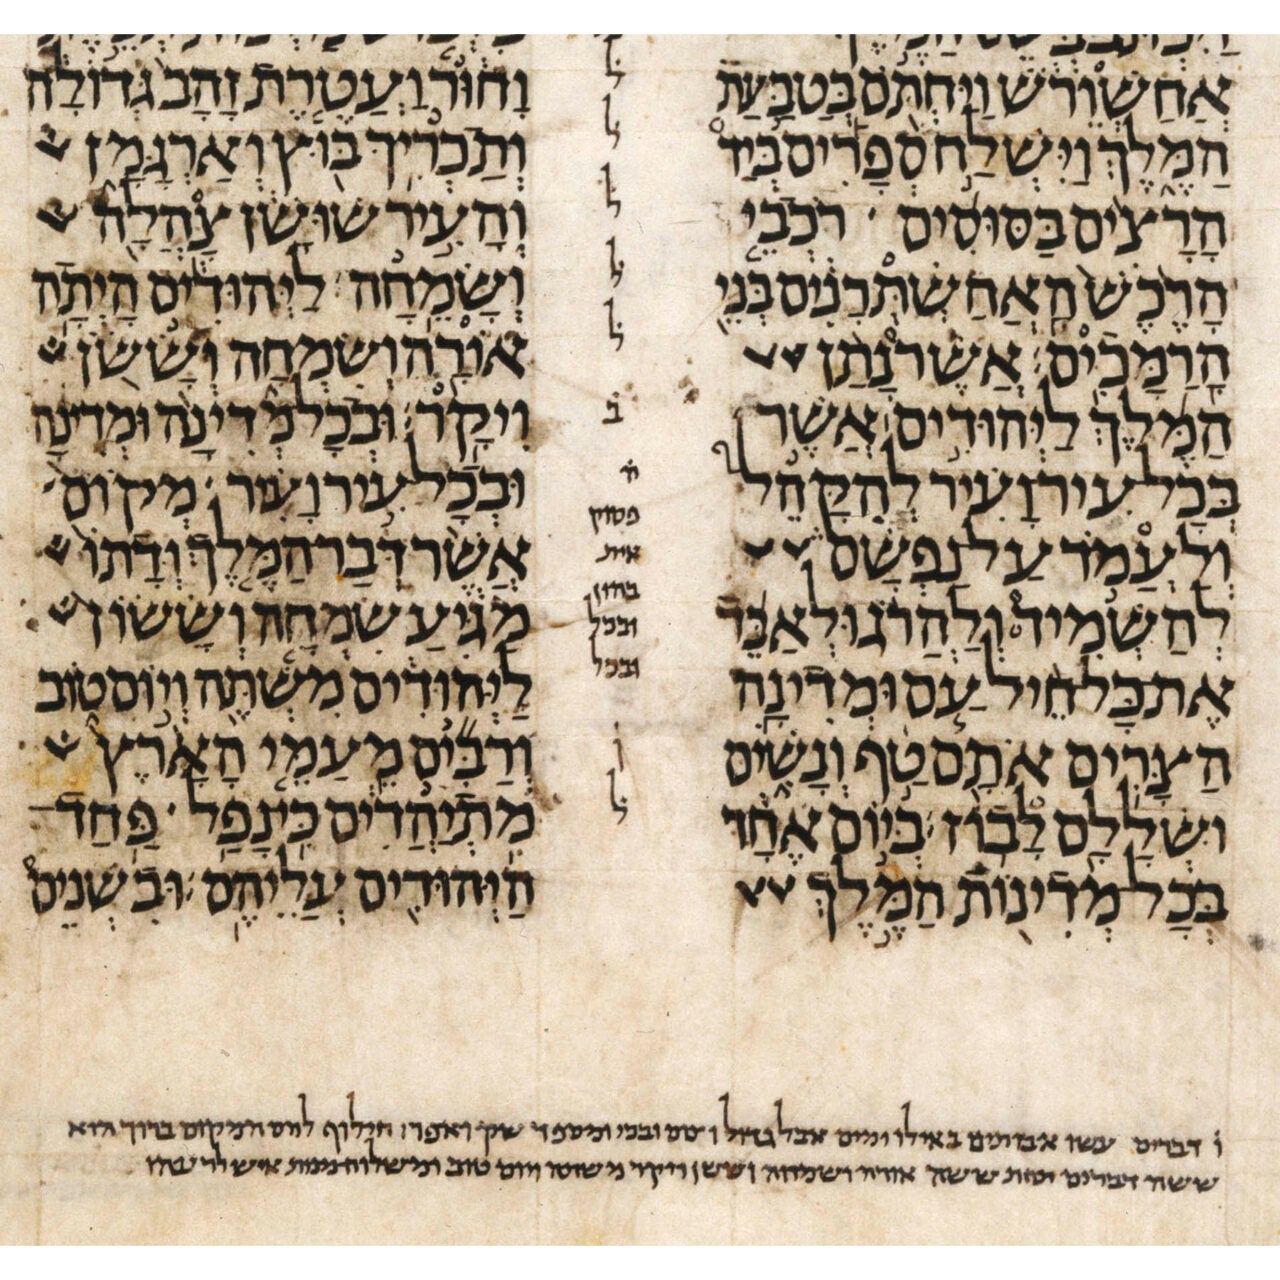 אֲחַשְׁוֵרֹשׁ וַיַּחְתֹּם בְּטַבַּעַת
הַמֶּלֶךְ וַיִּשְׁלַח סְפָרִים בְּיַד
הָרָצִים בַּסּוּסִים רֹכְבֵי
הָרֶכֶשׁ הָאֲחַשְׁתְּרָנִים בְּנֵי
הָרַמָּכִים׃ אֲשֶׁר נָתַן
הַמֶּלֶךְ לַיְּהוּדִים אֲשֶׁר
בְּכָל עִיר וָעִיר לְהִקָּהֵל
וְלַעֲמֹד עַל נַפְשָׁם
לְהַשְׁמִיד וְלַהֲרֹג וּלְאַבֵּד
אֶת כָּל חֵיל עַם וּמְדִינָה
הַצָּרִים אֹתָם טַף וְנָשִׁים
וּשְׁלָלָם לָבוֹז׃ בְּיוֹם אֶחָד
בְּכָל מְדִינוֹת הַמֶּלֶךְ
ל
ל
ל
ל
ל
ב
פסוק
אית
בהון
ובכל
ובכל
ו
ל
וָחוּר וַעֲטֶרֶת זָהָב גְּדוֹלָה
וְתַכְרִיךְ בּוּץ וְאַרְגָּמָן
וְהָעִיר שׁוּשָׁן צָהֲלָה
וְשָׂמֵחָה׃ לַיְּהוּדִים הָיְתָה
אוֹרָה וְשִׂמְחָה וְשָׂשֹׂן
וִיקָר׃ וּבְכָל מְדִינָה וּמְדִינָה
וּבְכָל עִיר וָעִיר מְקוֹם
אֲשֶׁר דְּבַר הַמֶּלֶךְ וְדָתוֹ
מַגִּיעַ שִׂמְחָה וְשָׂשׂוֹן
לַיְּהוּדִים מִשְׁתֶּה וְיוֹם טוֹב
וְרַבִּים מֵעַמֵּי הָאָרֶץ
מִתְיַהֲדִים כִּי נָפַל פַּחַד
הַיְּהוּדִים עֲלֵיהֶם׃ וּבִשְׁנֵים
ו דברים עשו אבותים באילו ימים אבל גדול וצום ובכי ומספד שק ואפר׃ חילוף לזה המקום ברוך הוא
ששה דברים ששה אורה ושמחה וששן ויקר משתה ויום טוב ומשלוח מנות איש לרעהו